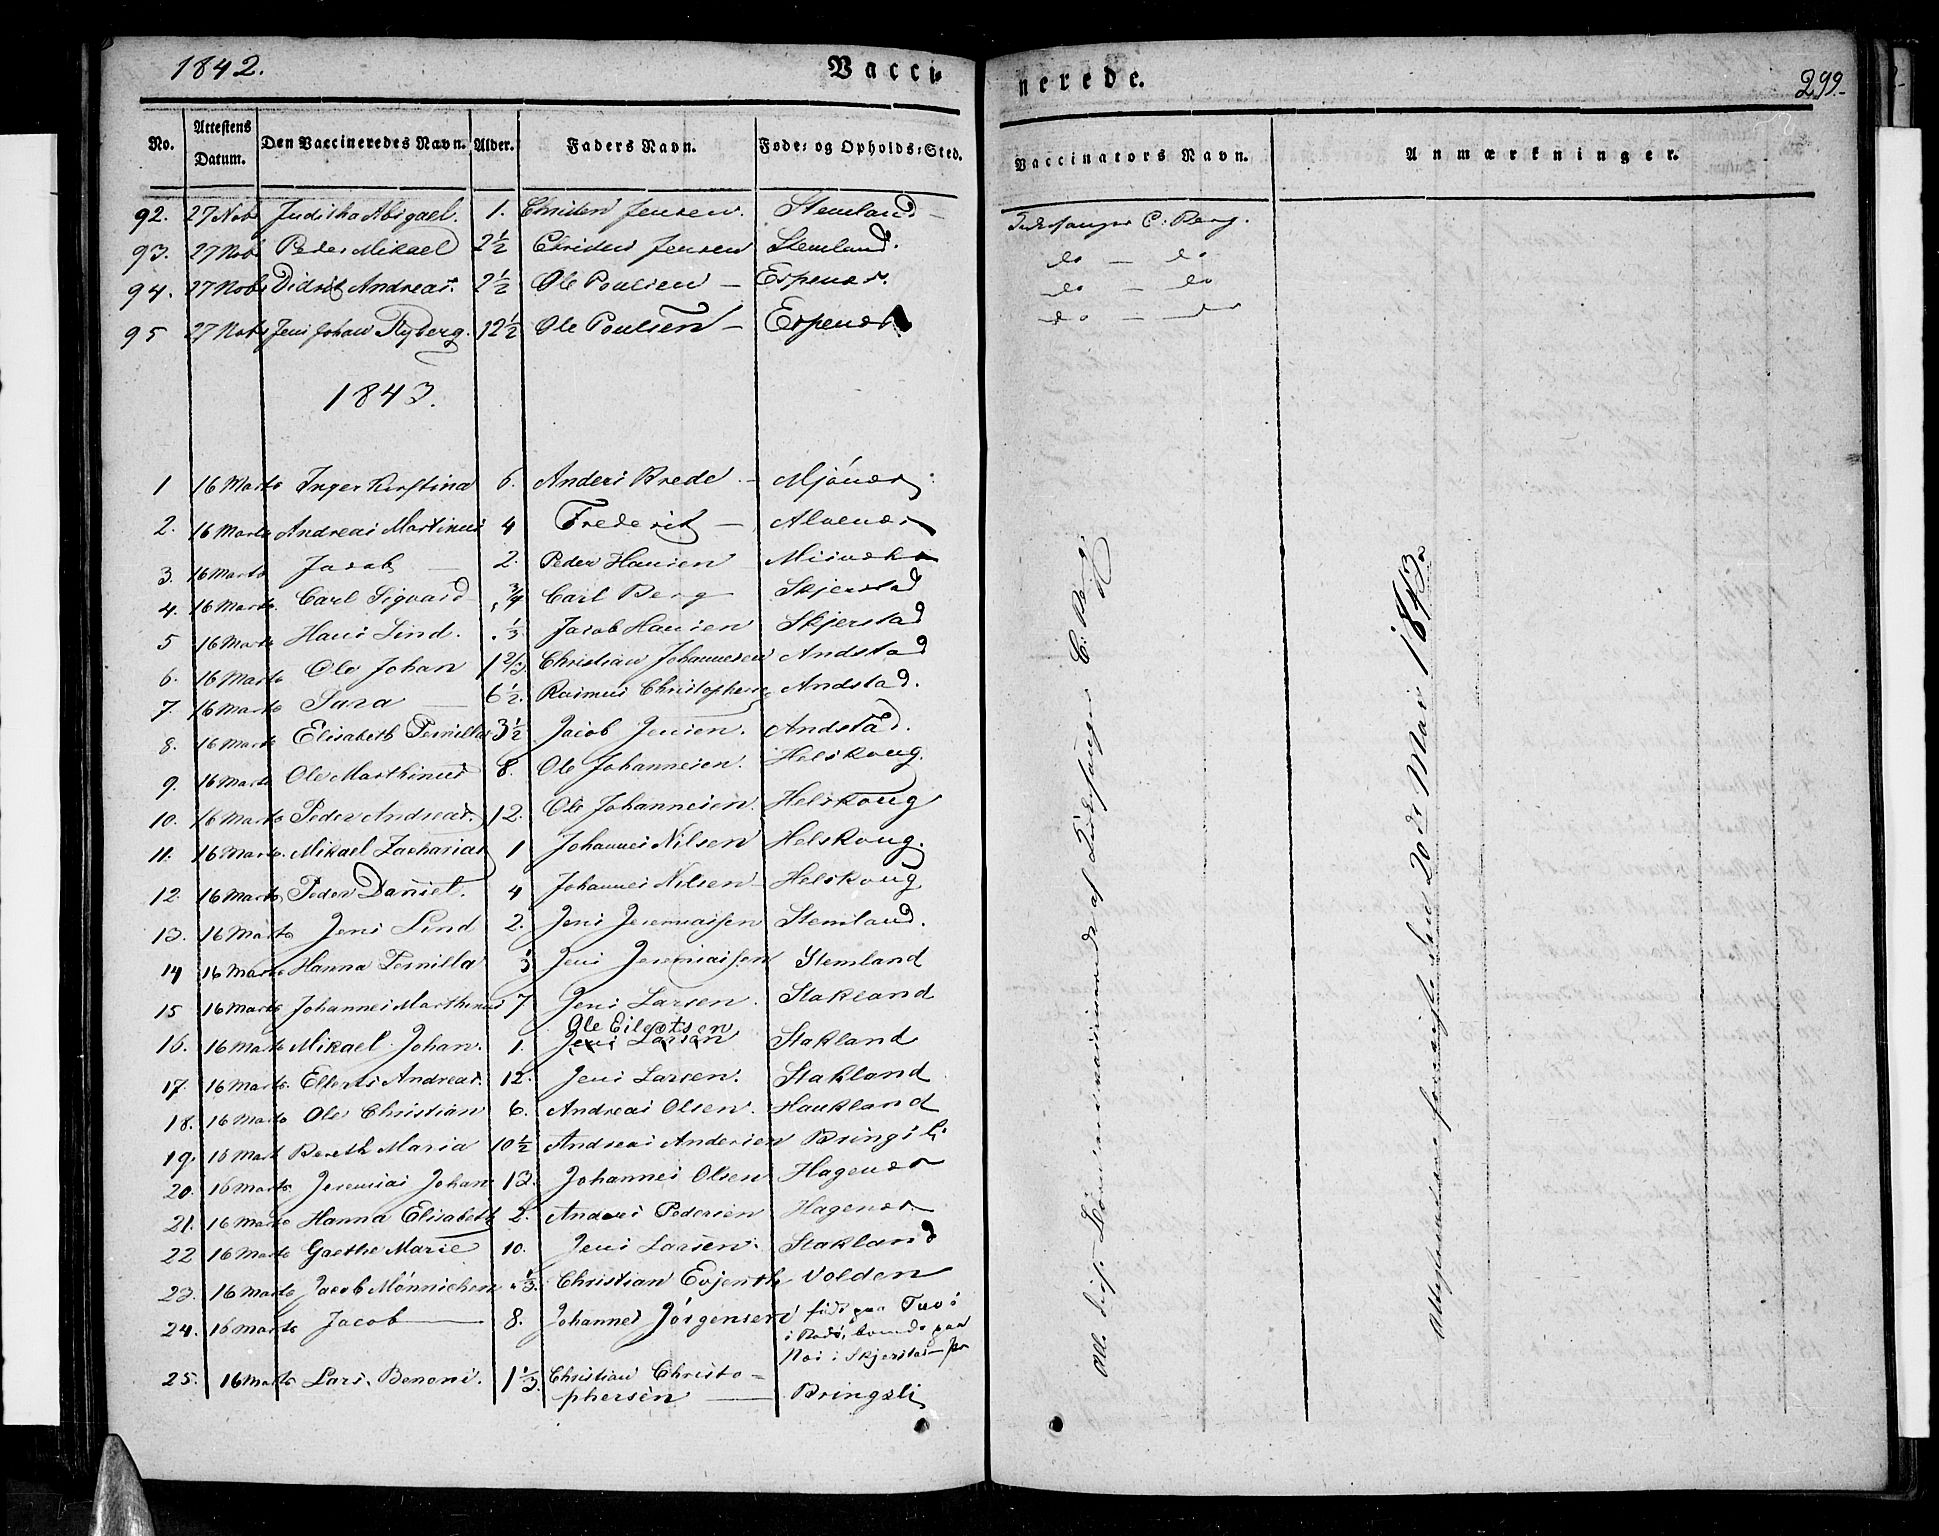 1842.
Vacci-
nerede.
299.
No. Attestens Datum. Den Vaccineredes Navn. Alder. Faders Navn. Føde- og Opholds-Sted. Vaccinators Navn. Anmærkninger.
92. 27 Nobr Juditha Abigael. 1. Christen Jensen. Stemland C. Berg.
93. 27 Nob Peder Mikael 2½ Christen Jensen Stemland. do — do
94. 27 Nobr Didrik Andreas. 2½ Ole Poulsen — Espenæs. do — do
95 27 Nobr Jens Johan Ryberg. 12½ Ole Poulsen — Espenæs do — do
1843.
1 16 Marts Inger Kirstina 6. Anders Brede — Mjónes
2. 16 Marts Andreas Martinus 4 Frederik — Alvenæs
3. 16 Marts Jacob — 2. Peder Hansen Misvær
4. 16 Marts Carl Sigvard ¾ Carl Berg — Skjerstad
5 16 Marts Hans Lind. ⅓ Jacob Hansen Skjerstad
6. 16 Marts Ole Johan 1⅔ Christian Johannesen Andstad
7. 16 Marts Sara — 6½. Rasmus Christophersen Andstad.
8. 16 Marts Elisabeth Pernilla 3½ Jacob Jensen. Andstad.
9. 16 Marts Ole Marthinus 8. Ole Johannesen. Helskoug.
10. 16 Marts Peder Andreas. 12. Ole Johannesen. Helskoug
11. 16 Marts. Mikael Zacharias 1 Johannes Nilsen Helskoug.
12. 16 Marts Peder Daniel. 4 Johannes Nilsen — Helskoug
13. 16 Marts Jens Lind 2. Jens Jeremiassen Stemland.
14 16 Marts Hanna Pernilla Jens Jeremiassen Stemland
15 16 Marts Johannes Marthinus 7 Jens Larsen. Stakland
Ole Eilertsen
16. 16 Marts Mikael Johan. 1. Jens Larsen Stakland
17. 16 Marts. Ellerts Andreas. 12. Jens Larsen. Stakland
18. 16 Marts Ole Christian 6. Andreas Olsen. Haukland
19. 16 Mart Bereth Maria 10½ Andreas Andersen Bringsli
20. 16 Marts. Jeremias Johan 13. Johannes Olsen Hagenæs
21. 16 Marts Hanna Elisabeth 2. Anders Pedersen Hagenæs
22 16 Marts Grethe Marie 10. Jens Larsen. Stakland
23. 16 Marts Jacob Mønnichen ⅓. Christian Evjenth Volden
24. 16 Marts Jacob — 8. Johannes Jörgensen født paa Tuv i
i Bodö, boende paa
i Skjerstad
25. 16 Marts Lars Benoni. 1⅓. Christian Christo-
phersen — Bringsli
Alle disse ere vaccinerede af Kirkesanger C. Berg.
den 20de Mai 1843.